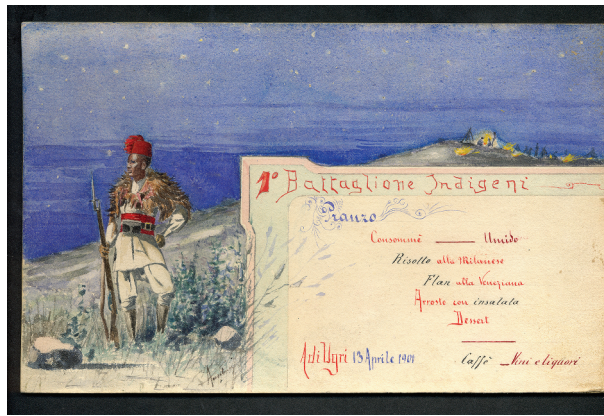 1º Battaglione Indigeni
Pranzo
Consommé — Umido
Risotto alla Milanese
Flan alla Veneziana
Arrosto con insalata
Dessert
Adi Ugri 13 Aprile 1901
Caffè — Vini e liquori